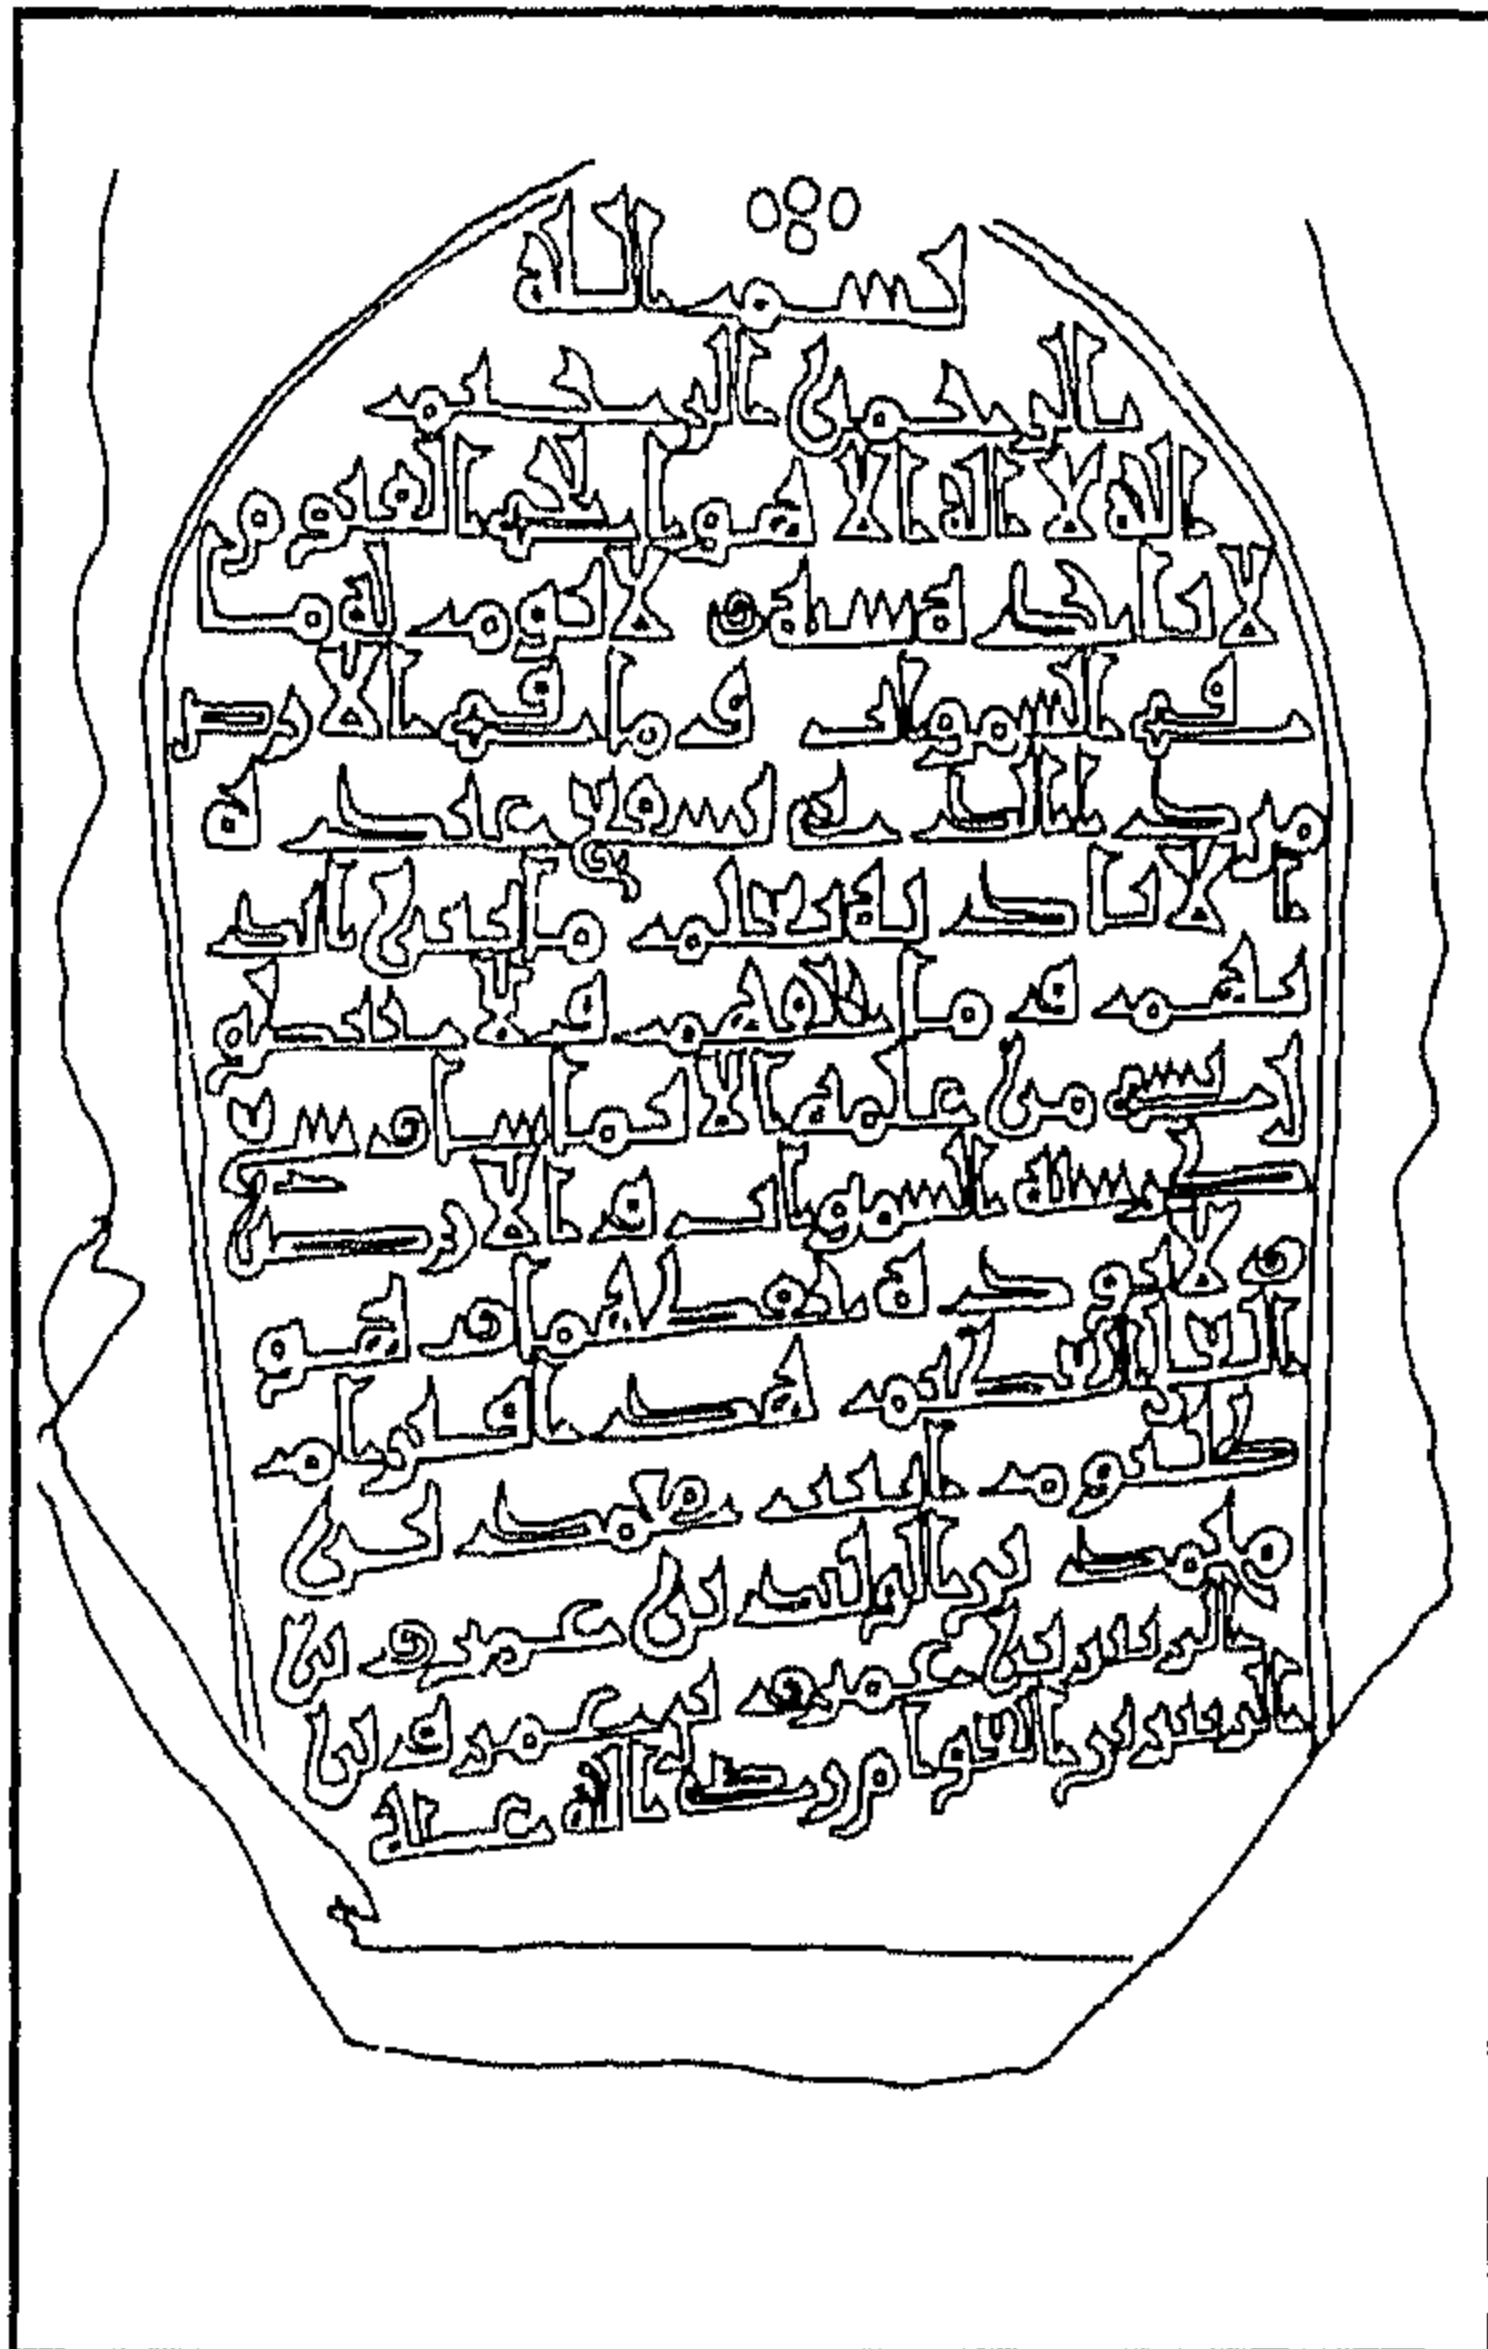 بسم الله
الرحمن الرحيم
الله لا اله الا هو الحي القيوم
لا تاخذه سنة ولا نوم له ما
في السموات وما في الارض
من ذا الذي يشفع عنده
الا باذنه يعلم ما بين ايد
يهم وما خلفهم ولا يحيطو
ن بشي من علمه الا بما شا وسع
كرسيه السموات والارض
ولا يوده حفظهما وهو
العلي العظيم هذا قبر ام
كلثوم ابنت محمد بن
محمد بن بن عمرو بن
الزبير بن عمرو بن عمرو بن
الزبير بن العوام رضي الله عليه